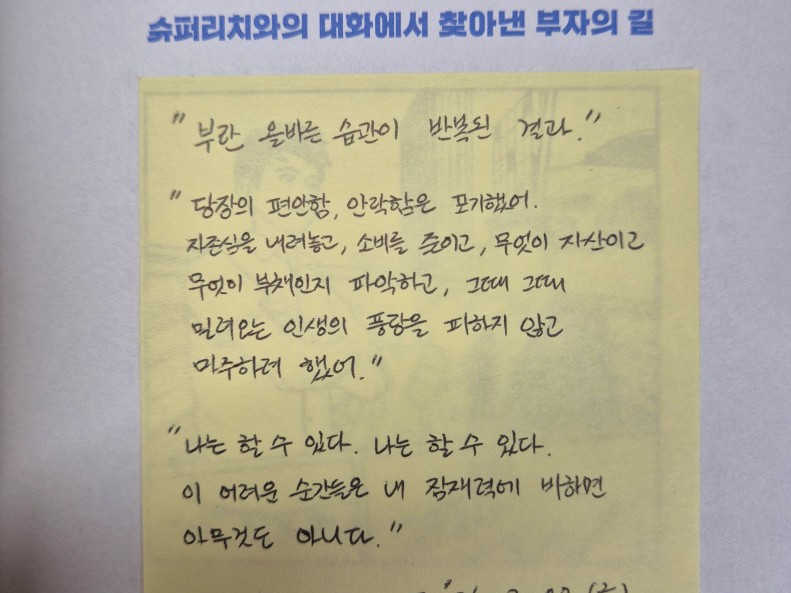 슈퍼리치와의 대화에서 찾아낸 부자의 길
"부란 올바른 습관이 반복된 결과."
"당장의 편안함, 안락함은 포기했어.
자존심을 내려놓고, 소비를 줄이고, 무엇이 자산이고
무엇이 부채인지 파악하고, 그때 그때
밀려오는 인생의 풍랑을 피하지 않고
마주하려 했어."
"나는 할 수 있다. 나는 할 수 있다.
이 어려운 순간들은 내 잠재력에 비하면
아무것도 아니다."